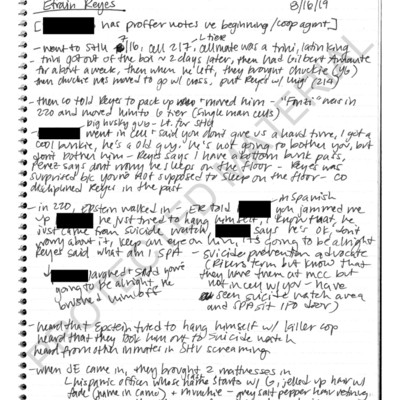 Efrain Keyes 8/16/19
[ has proffer notes re beginning / coop agent.]
- went to SHU 7/16, cell 217, cellmate was a trini, latin king
L tier
- trini got out of the box ~ 2 days later, then had Gilbert
for about a week, then when he left, they brought chuckie (46)
then chuckie was moved to go w/ cross, put Keyes w/ Luigi (214)
- then co told Keyes to pack up now + moved him "Fonti" now in
220 and moved him to G tier (single man cells)
big husky guy - Lt. for SHU
- went in cell + said you don't give us a hard time, I got a
cool bunkie, he's a old guy. He's not going to bother you, but
don't bother him - Keyes says I have a bottom bunk pass,
Perez says dont worry he sleeps on the floor - Keyes was
surprised b/c you're not supposed to sleep on the floor - CO
disciplined Keyes in the past
in Spanish
- in 220, Epstein walked in - EK told you jammed me
up he just tried to hang himself, I know that, he
just came from suicide watch, says he's ok, dont
worry about it, keep an eye on him, it's going to be alright
Keyes said what am I SPA - suicide prevention advocate
(Rikers term but know that
they have them at mcc but
not in cell w/ you - have
seen suicide watch area
and SPA sit 1 FO door)
↓ laughed + said you're
going to be alright, he
brushed him off
- heard that Epstein tried to hang himself w/ killer cop
heard that they took him out to suicide watch
heard from other inmates in SHU screaming
- when JE came in, they brought 2 mattresses in
L hispanic officer whose last name starts w/ G, jelled up hair w/
fade (name in camo) + munchie - grey salt pepper hair